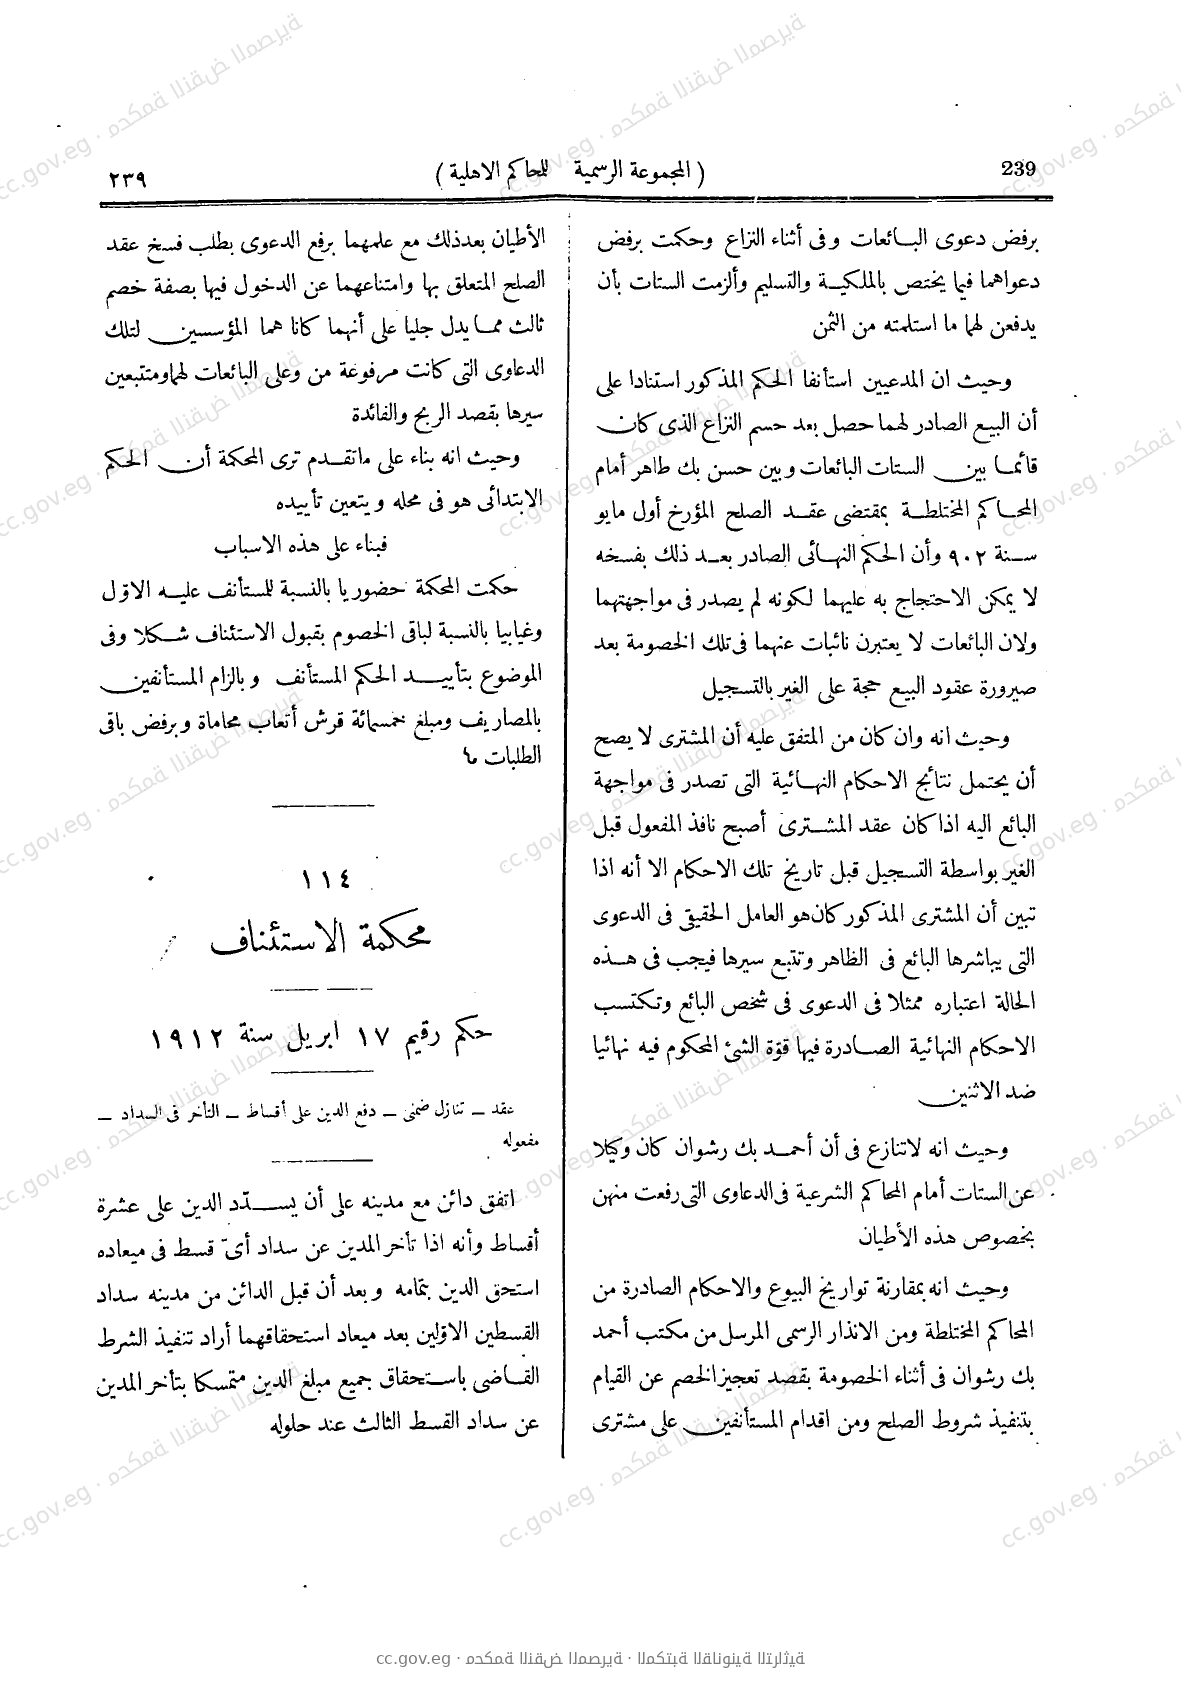 239
( المجموعة الرسمية للمحاكم الاهلية )
٢٣٩
برفض دعوى البائعات وفى أثناء النزاع وحكمت برفض
دعواهما فيما يختص بالملكية والتسليم وألزمت الستات بأن
يدفعن لهما ما استلمته من الثمن
وحيث ان المدعيين استأنفا الحكم المذكور استنادا على
أن البيع الصادر لهما حصل بعد حسم النزاع الذى كان
قائما بين الستات البائعات وبين حسن بك طاهر أمام
المحاكم المختلطة بمقتضى عقد الصلح المؤرخ أول مايو
سنة ٩٠٢ وأن الحكم النهائى الصادر بعد ذلك بفسخه
لا يمكن الاحتجاج به عليهما لكونه لم يصدر فى مواجهتهما
ولان البائعات لا يعتبرن نائبات عنهما فى تلك الخصومة بعد
صيرورة عقود البيع حجة على الغير بالتسجيل
وحيث انه وان كان من المتفق عليه أن المشترى لا يصح
أن يحتمل نتائج الاحكام النهائية التى تصدر فى مواجهة
البائع اليه اذا كان عقد المشترى أصبح نافذ المفعول قبل
الغير بواسطة التسجيل قبل تاريخ تلك الاحكام الا أنه اذا
تبين أن المشترى المذكور كان هو العامل الحقيقى فى الدعوى
التى يباشرها البائع فى الظاهر وتتبع سيرها فيجب فى هذه
الحالة اعتباره ممثلا فى الدعوى فى شخص البائع وتكتسب
الاحكام النهائية الصادرة فيها قوّة الشئ المحكوم فيه نهائيا
ضد الاثنين
وحيث انه لاتنازع فى أن أحمد بك رشوان كان وكيلا
عن الستات أمام المحاكم الشرعية فى الدعاوى التى رفعت منهن
بخصوص هذه الأطيان
وحيث انه بمقارنة تواريخ البيوع والاحكام الصادرة من
المحاكم المختلطة ومن الانذار الرسمى المرسل من مكتب أحمد
بك رشوان فى أثناء الخصومة بقصد تعجيز الخصم عن القيام
بتنفيذ شروط الصلح ومن اقدام المستأنفين على مشترى
الأطيان بعد ذلك مع علمهما برفع الدعوى بطلب فسخ عقد
الصلح المتعلق بها وامتناعهما عن الدخول فيها بصفة خصم
ثالث مما يدل جليا على أنهما كانا هما المؤسسين لتلك
الدعاوى التى كانت مرفوعة من وعلى البائعات لهما ومتتبعين
سيرها بقصد الربح والفائدة
وحيث انه بناء على ماتقدم ترى المحكمة أن الحكم
الابتدائى هو فى محله ويتعين تأييده
فبناء على هذه الاسباب
حكمت المحكمة حضوريا بالنسبة للمستأنف عليه الاوّل
وغيابيا بالنسبة لباقى الخصوم بقبول الاستئناف شكلا وفى
الموضوع بتأييد الحكم المستأنف وبالزام المستأنفين
بالمصاريف ومبلغ خمسمائة قرش أتعاب محاماة وبرفض باقى
الطلبات
١١٤
محكمة الاستئناف
حكم رقيم ١٧ ابريل سنة ١٩١٢
عقد ــ تنازل ضمنى ــ دفع الدين على أقساط ــ التأخر فى السداد ــ
مفعوله
اتفق دائن مع مدينه على أن يسدّد الدين على عشرة
أقساط وأنه اذا تأخر المدين عن سداد أىّ قسط فى ميعاده
استحق الدين بتمامه وبعد أن قبل الدائن من مدينه سداد
القسطين الاوّلين بعد ميعاد استحقاقهما أراد تنفيذ الشرط
القاضى باستحقاق جميع مبلغ الدين متمسكا بتأخر المدين
عن سداد القسط الثالث عند حلوله
cc.gov.eg · محكمة النقض المصرية · المكتبة القانونية التراثية